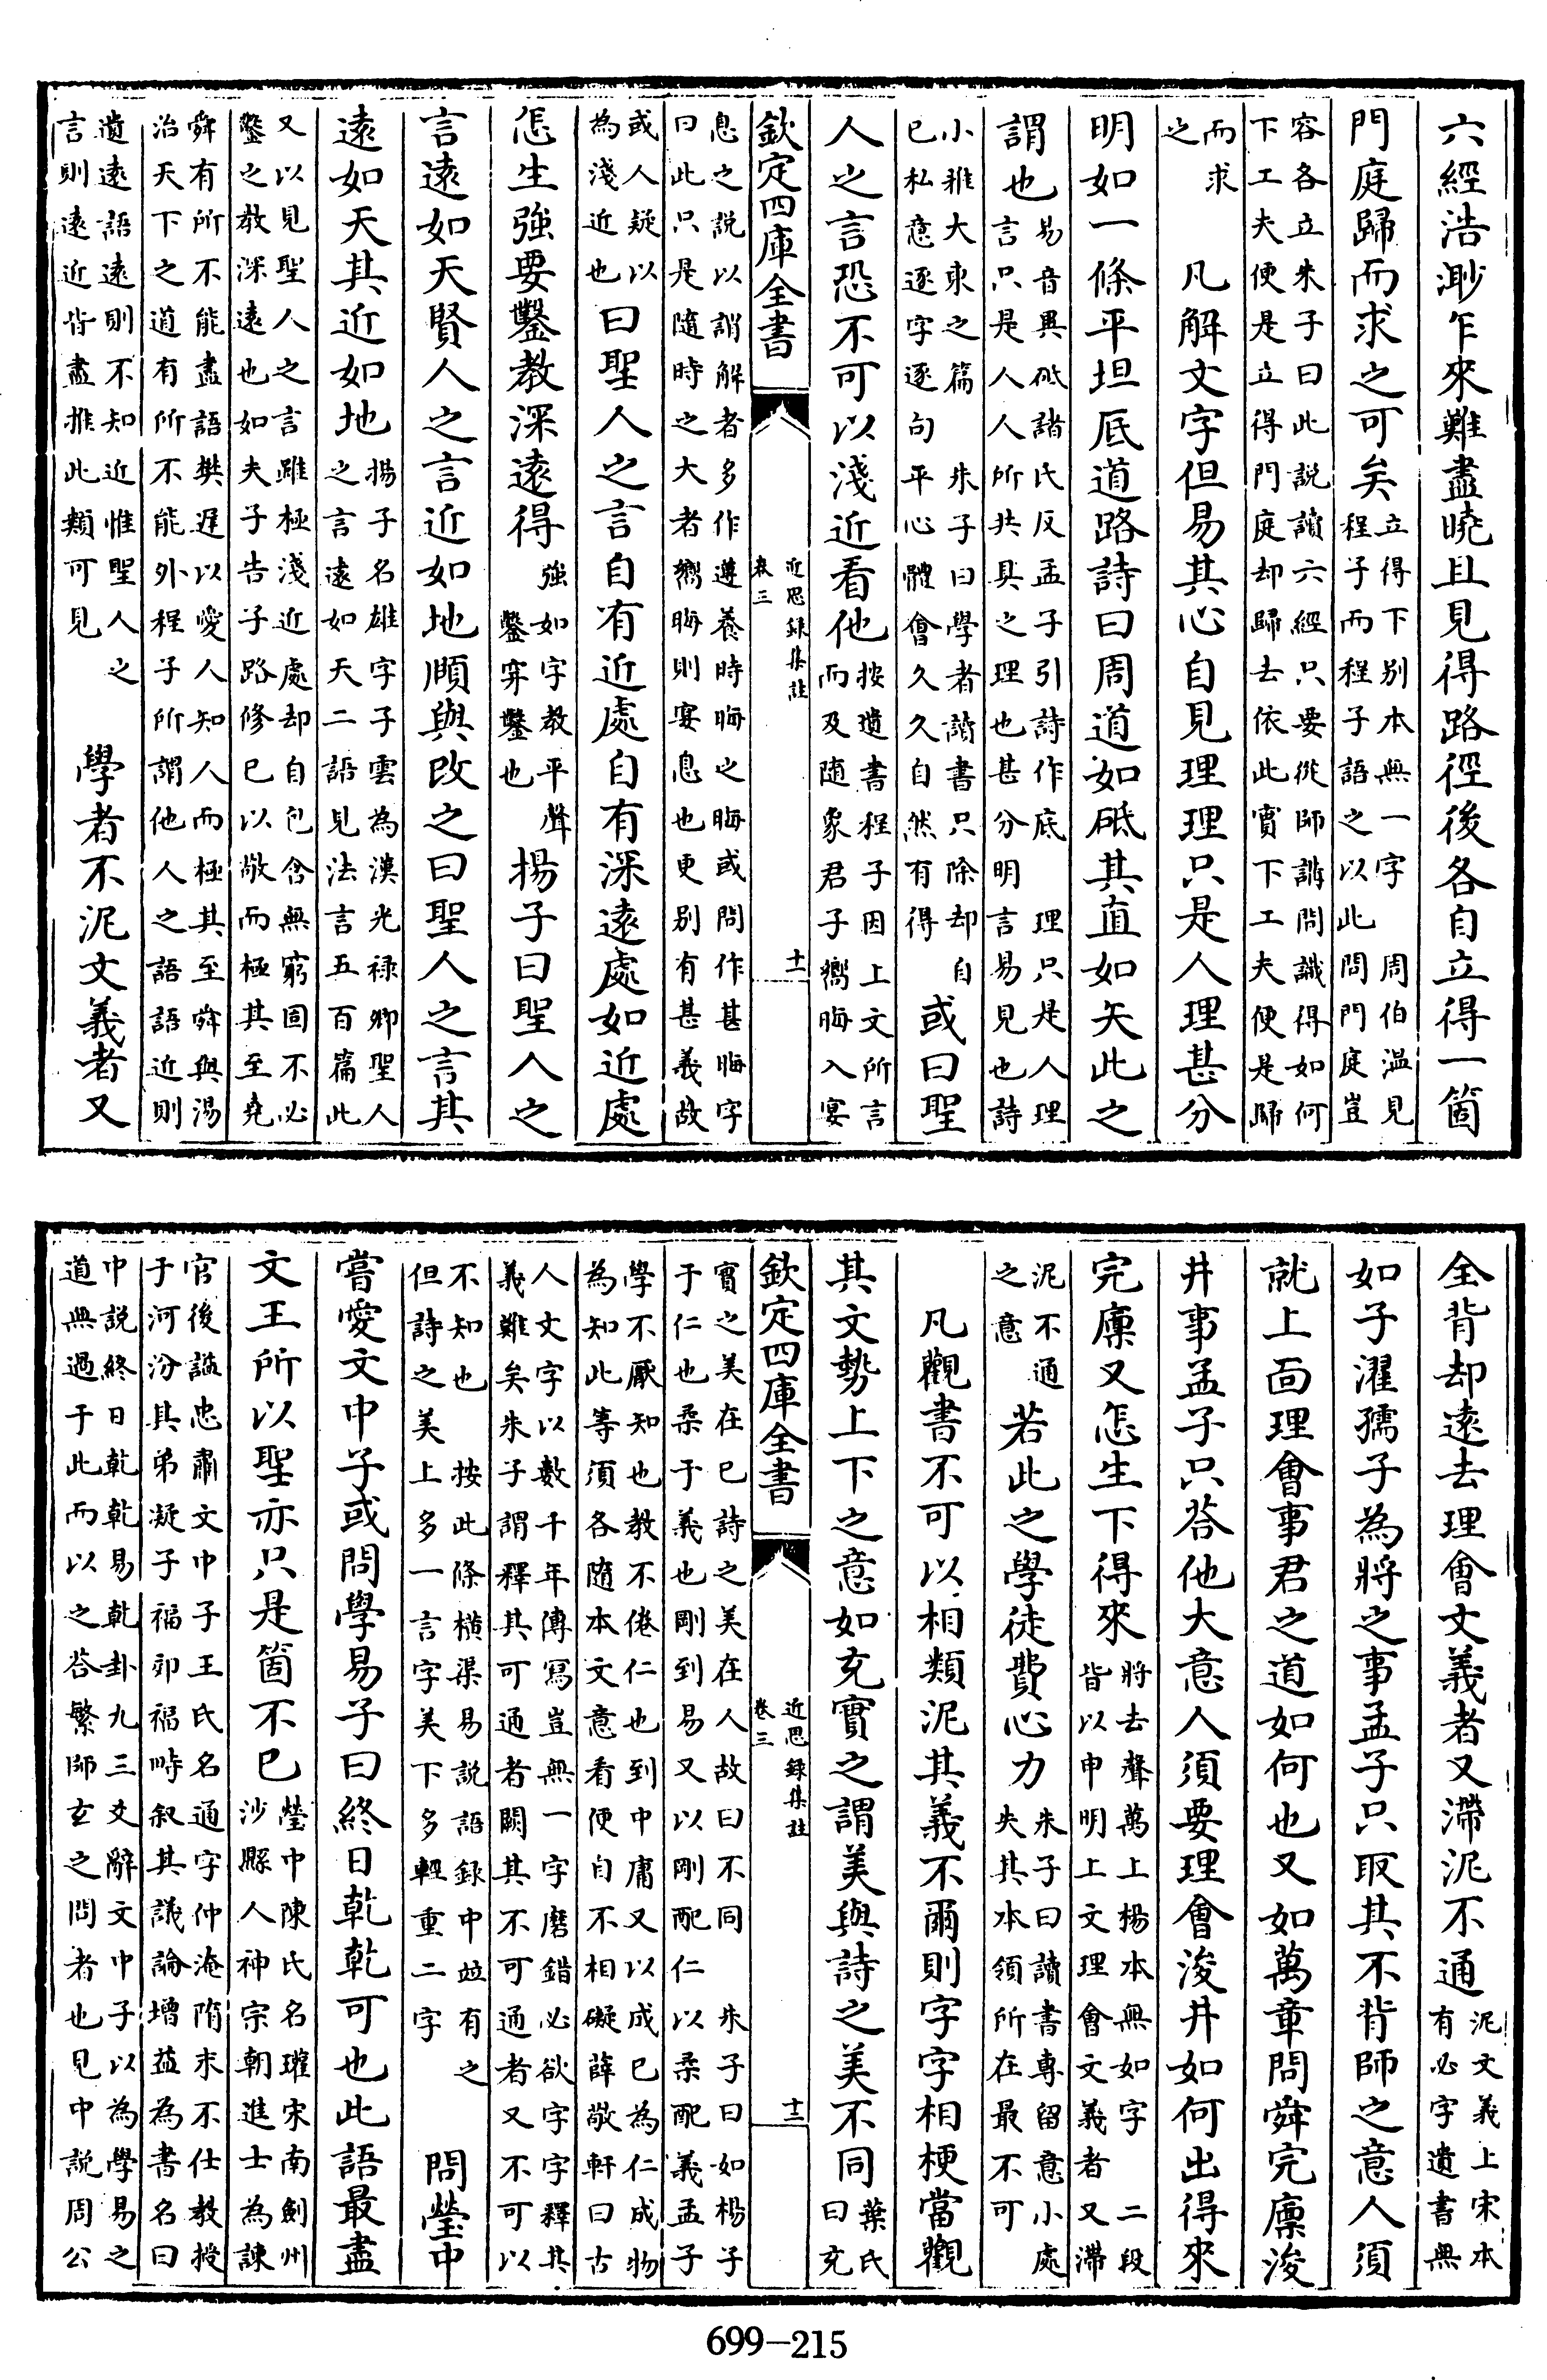 六經浩渺乍來難盡曉且見得路徑後各自立得一箇
門庭歸而求之可矣立得下别本無一字程子而程子語之以此周伯溫見問門庭豈
容各立朱子曰此説讀六經只要從師講問識得如何下工夫便是立得門庭却歸去依此實下工夫便是歸
而求之凡解文字但易其心自見理理只是人理甚分
明如一條平坦厎道路詩曰周道如砥其直如矢此之
謂也易音異砥諸氏反孟子引詩作底言只是人人所共具之理也甚分明理只是人理言易見也詩
小雅大東之篇朱子曰學者讀書只除却自己私意逐字逐句平心體會久久自然有得或曰聖
人之言恐不可以淺近看他按遺書程子因上文所言而及隨象君子嚮晦入宴
欽定四庫全書
近思録集註
卷三
十一
息之説以謂解者多作遵養時晦之晦或問作甚晦字曰此只是隨時之大者嚮晦則宴息也更别有甚義故
或人疑以為淺近也曰聖人之言自有近處自有深遠處如近處
怎生強要鑿教深遠得強如字教平聲鑿穿鑿也揚子曰聖人之
言遠如天賢人之言近如地頤與改之曰聖人之言其
遠如天其近如地揚子名雄字子雲為漢光禄卿聖人之言遠如天二語見法言五百篇此
又以見聖人之言雖極淺近處却自包含無窮固不必鑿之教深遠也如夫子告子路修己以敬而極其至堯
舜有所不能盡語樊遲以愛人知人而極其至舜與湯治天下之道有所不能外程子所謂他人之語語近則
遺遠語遠則不知近惟聖人之言則遠近皆盡推此類可見學者不泥文義者又
全背却遠去理會文義者又滯泥不通泥文義上宋本有必字遺書無
如子濯孺子為將之事孟子只取其不背師之意人須
就上面理會事君之道如何也又如萬章問舜完廪浚
井事孟子只荅他大意人須要理會浚井如何出得來
完廪又怎生下得來將去聲萬上楊本無如字皆以申明上文理會文義者二段又滯
泥不通之意若此之學徒費心力朱子曰讀書專留意小處失其本領所在最不可
凡觀書不可以相類泥其義不爾則字字相梗當觀
其文勢上下之意如充實之謂美與詩之美不同葉氏曰充
欽定四庫全書
近思録集註
卷三
十二
實之美在已詩之美在人故曰不同朱子曰如楊子于仁也柔于義也剛到易又以剛配仁以柔配義孟子
學不厭知也教不倦仁也到中庸又以成已為仁成物為知此等須各隨本文意看便自不相礙薛敬軒曰古
人文字以數千年傳寫豈無一字磨錯必欲字字釋其義難矣朱子謂釋其可通者闕其不可通者又不可以
不知也按此條横渠易説語録中竝有之但詩之美上多一言字美下多輕重二字問瑩中
嘗愛文中子或問學易子曰終日乾乾可也此語最盡
文王所以聖亦只是箇不已瑩中陳氏名瓘宋南劍州沙縣人神宗朝進士為諫
官後諡忠肅文中子王氏名通字仲淹隋末不仕教授于河汾其弟凝子福郊福畤叙其議論增益為書名曰
中説終日乾乾易乾卦九三爻辭文中子以為學易之道無過于此而以之荅繁師玄之問者也見中説周公
699-215